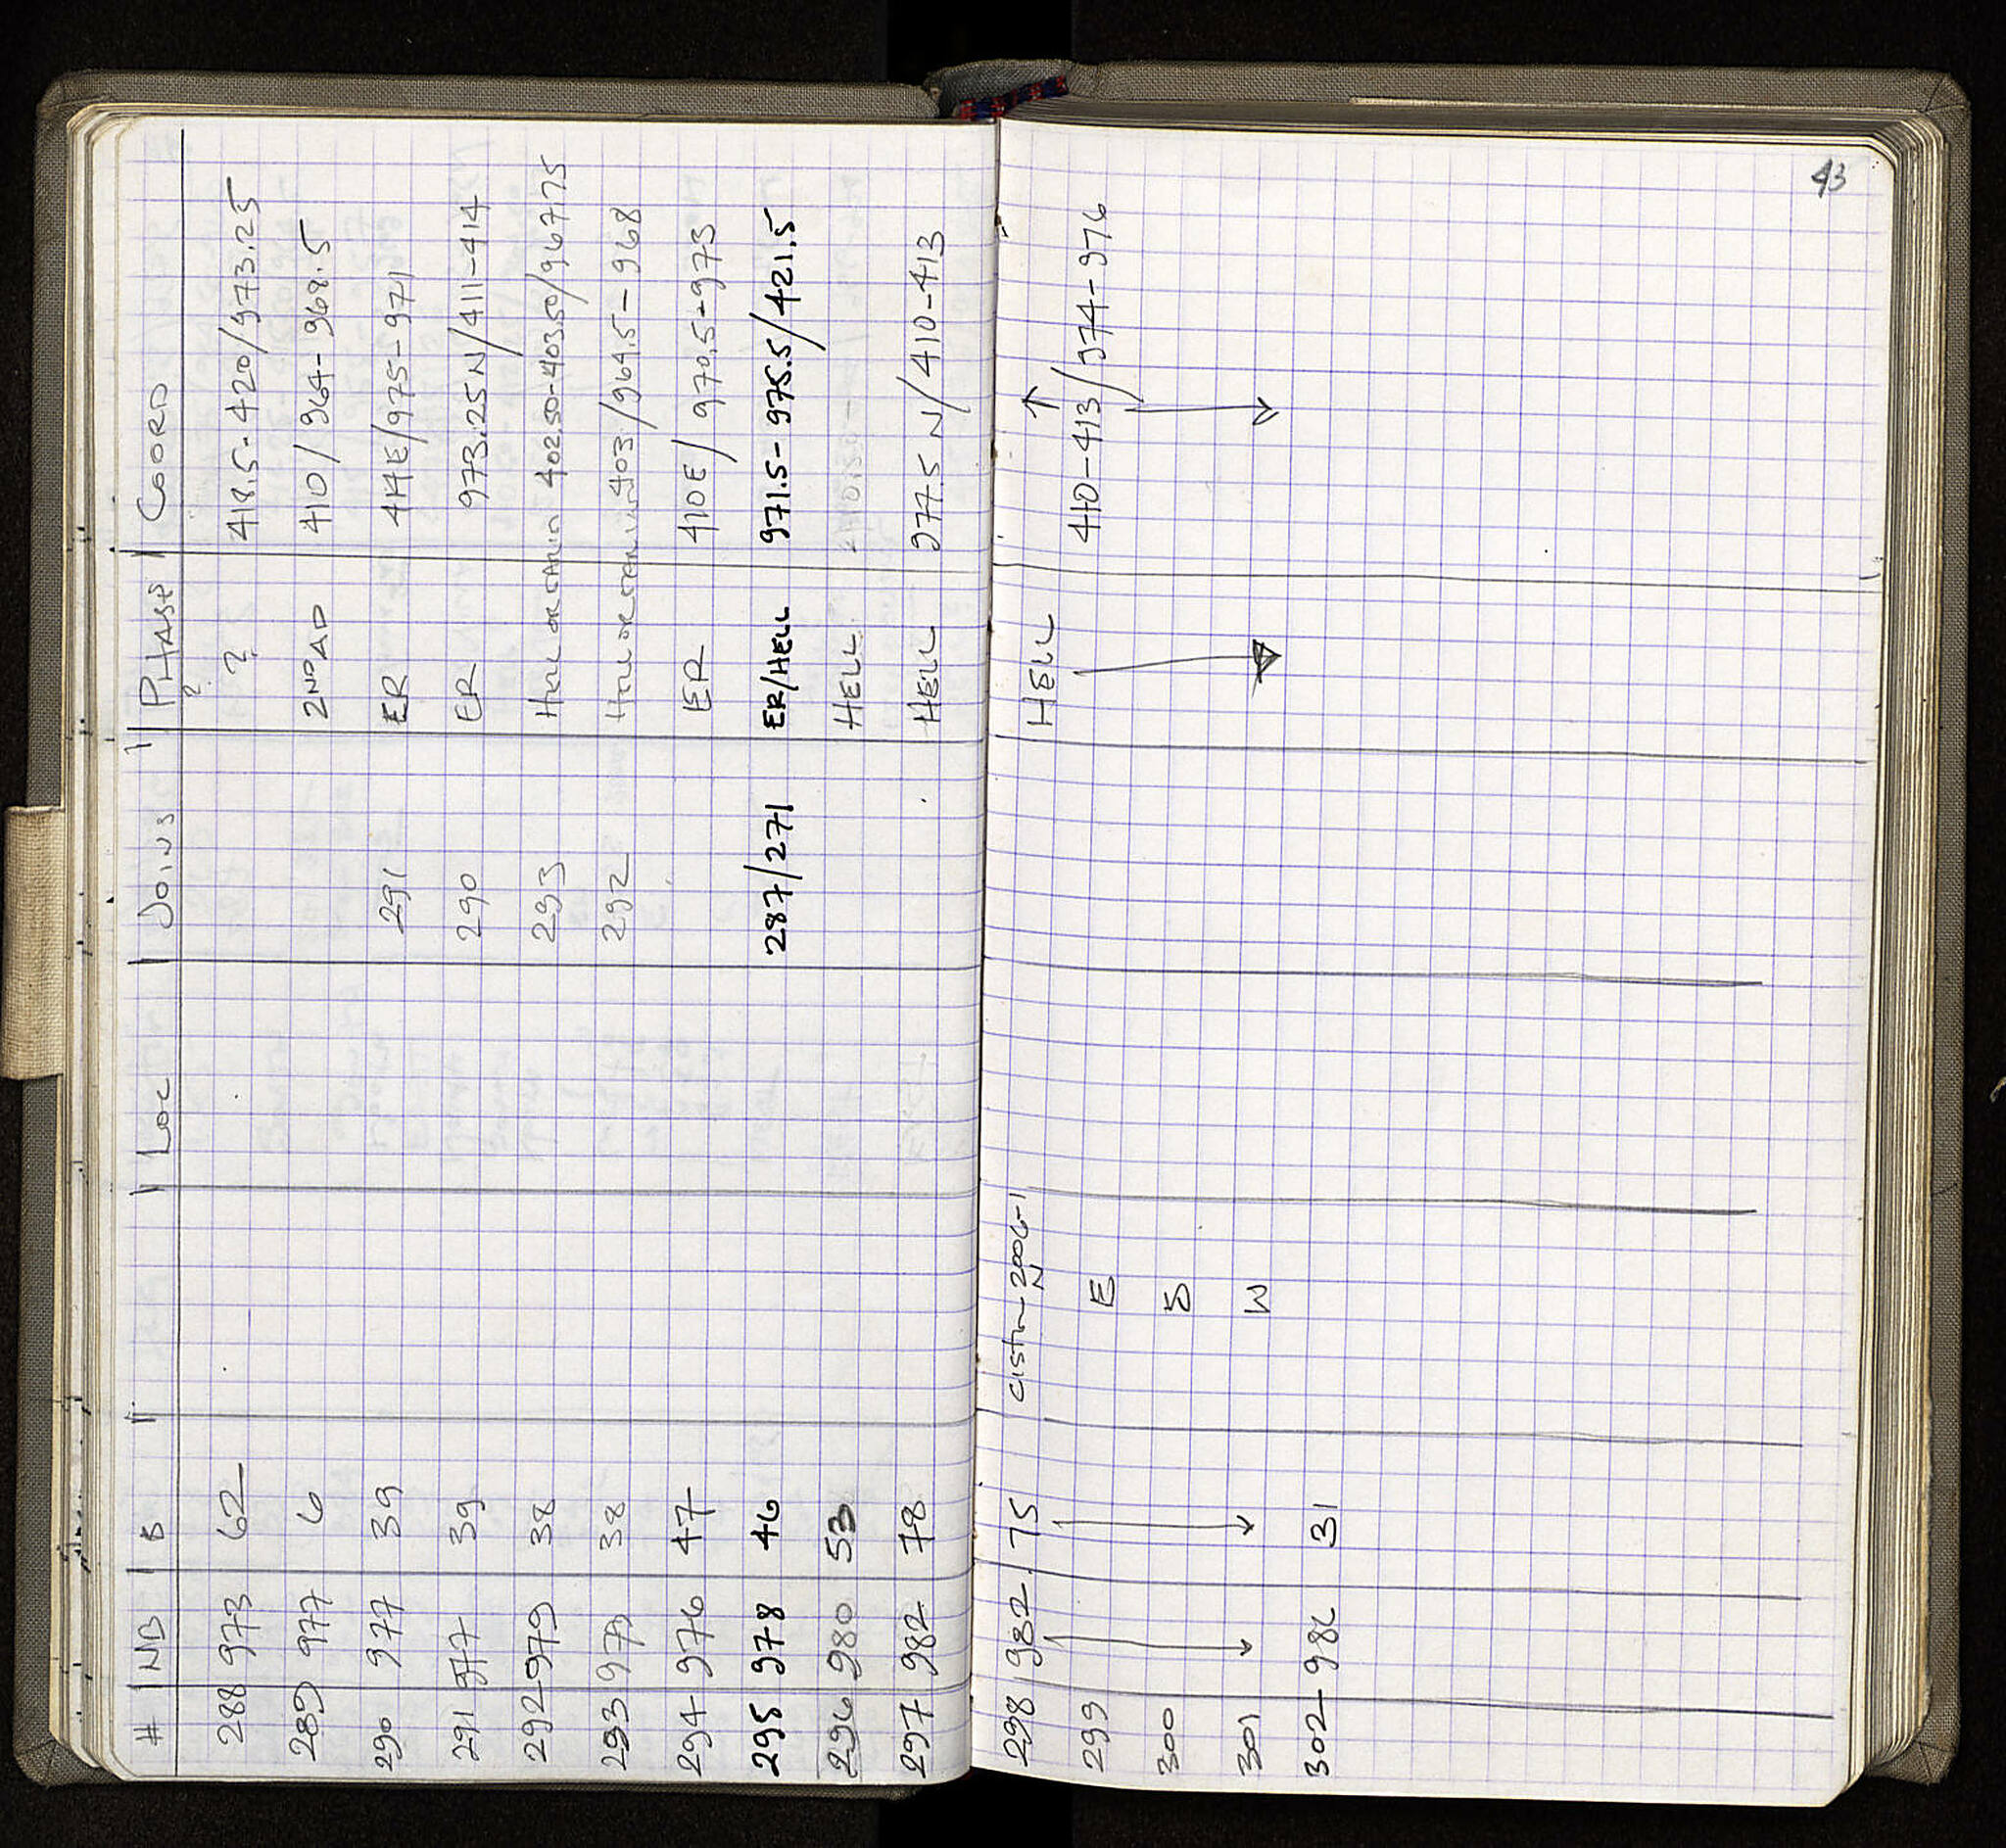 43
# NB B LOC JOINS PHASE COORD
288 973 62 ? ? 418.5-420/973.25
289 977 6 2ND AD 410/964-968.5
290 977 39 291 ER 414E/975-971
291 977 39 290 ER 973.25N/411-414
292 979 38 293 402.50-403.50/967.75
293 979 38 292 403/964.5-968
294 976 47 ER 410E/970.5-973
295 978 46 287/271 ER/HELL 971.5-975.5/421.5
296 980 53 HELL
297 982 78 HELL 977.5 N/410-413
298 982 75 Cistern 2006-1 N HELL ↑
299 E 410-413/974-976
300 S
301 W
302 982 31